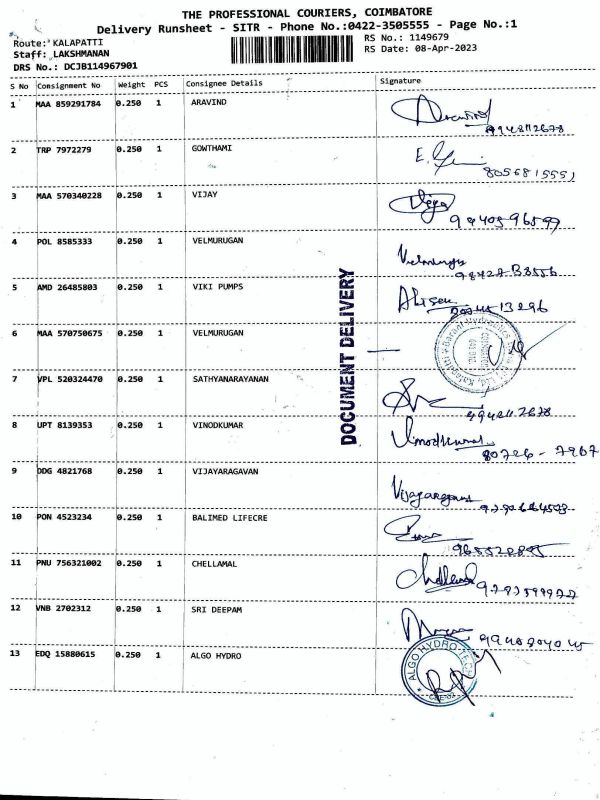 THE PROFESSIONAL COURIERS, COIMBATORE
Delivery Runsheet - SITR - Phone No.:0422-3505555 - Page No.:1
Route: KALAPATTI
RS No.: 1149679
Staff: LAKSHMANAN
RS Date: 08-Apr-2023
DRS No.: DCJB114967901
S No Consignment No Weight PCS Consignee Details Signature
1 MAA 859291784 0.250 1 ARAVIND
2 TRP 7972279 0.250 1 GOWTHAMI
8056815551
3 MAA 570340228 0.250 1 VIJAY
4 POL 8585333 0.250 1 VELMURUGAN
5 AMD 26485803 0.250 1 VIKI PUMPS
DOCUMENT DELIVERY
6 MAA 570750675 0.250 1 VELMURUGAN
7 VPL 520324470 0.250 1 SATHYANARAYANAN
8 UPT 8139353 0.250 1 VINODKUMAR Vinodkumar
80726-7967
9 DDG 4821768 0.250 1 VIJAYARAGAVAN
10 PON 4523234 0.250 1 BALIMED LIFECRE
11 PNU 756321002 0.250 1 CHELLAMAL
12 VNB 2702312 0.250 1 SRI DEEPAM
13 EDQ 15880615 0.250 1 ALGO HYDRO
ALGO HYDRO-TECH